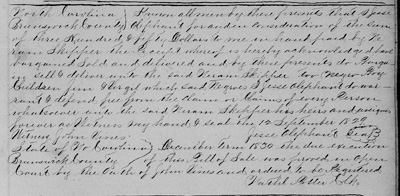 North Carolina } Know all men by these presents that I Jesse
Brunswick County } Oliphant for and in consideration of the sum
of three Hundred & fifty Dollars to me in hand paid by
Skipper the Receipt whereof is hereby acknowledged have
bargained Sold and delivered and by these presents do Bargain
sell & deliver unto the said Skipper two Negro Boy
Children Jim & Virgil which said Negroes I Jesse Oliphant do war-
rant & defend free from the claim or Claims of every Person
whatsoever unto the said Skipper his heirs and assigns
forever as Witness my hand & seal the 12 September 1829
Witness John Jesse Oliphant Seal
State of No Carolina } December term 1830 the due execution
Brunswick County } of this Bill of Sale was proved in Open
Court by the Oath of John and ordered to be Registered
Clk.